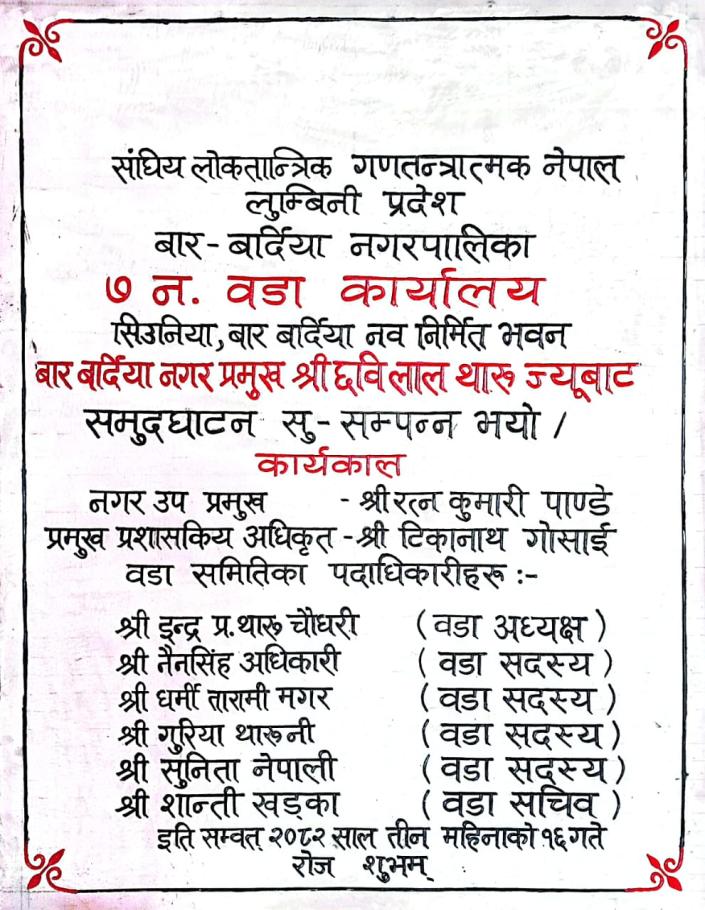 संघिय लोकतान्त्रिक गणतन्त्रात्मक नेपाल
लुम्बिनी प्रदेश
बार-बर्दिया नगरपालिका
७ न. वडा कार्यालय
सिउनिया, बार बर्दिया नव निर्मित भवन
बार बर्दिया नगर प्रमुख श्री छविलाल थारू ज्यूबाट
समुदघाटन सु-सम्पन्न भयो /
कार्यकाल
नगर उप प्रमुख - श्री रत्न कुमारी पाण्डे
प्रमुख प्रशासकिय अधिकृत - श्री टिकानाथ गोसाई
वडा समितिका पदाधिकारीहरू :-
श्री इन्द्र प्र. थारू चौधरी (वडा अध्यक्ष)
श्री नैनसिंह अधिकारी (वडा सदस्य)
श्री धर्मी तारामी मगर (वडा सदस्य)
श्री गुरिया थारूनी (वडा सदस्य)
श्री सुनिता नेपाली (वडा सदस्य)
श्री शान्ती खड्का (वडा सचिव)
इति सम्वत् २०८२ साल तीन महिनाको १६ गते
रोज शुभम्